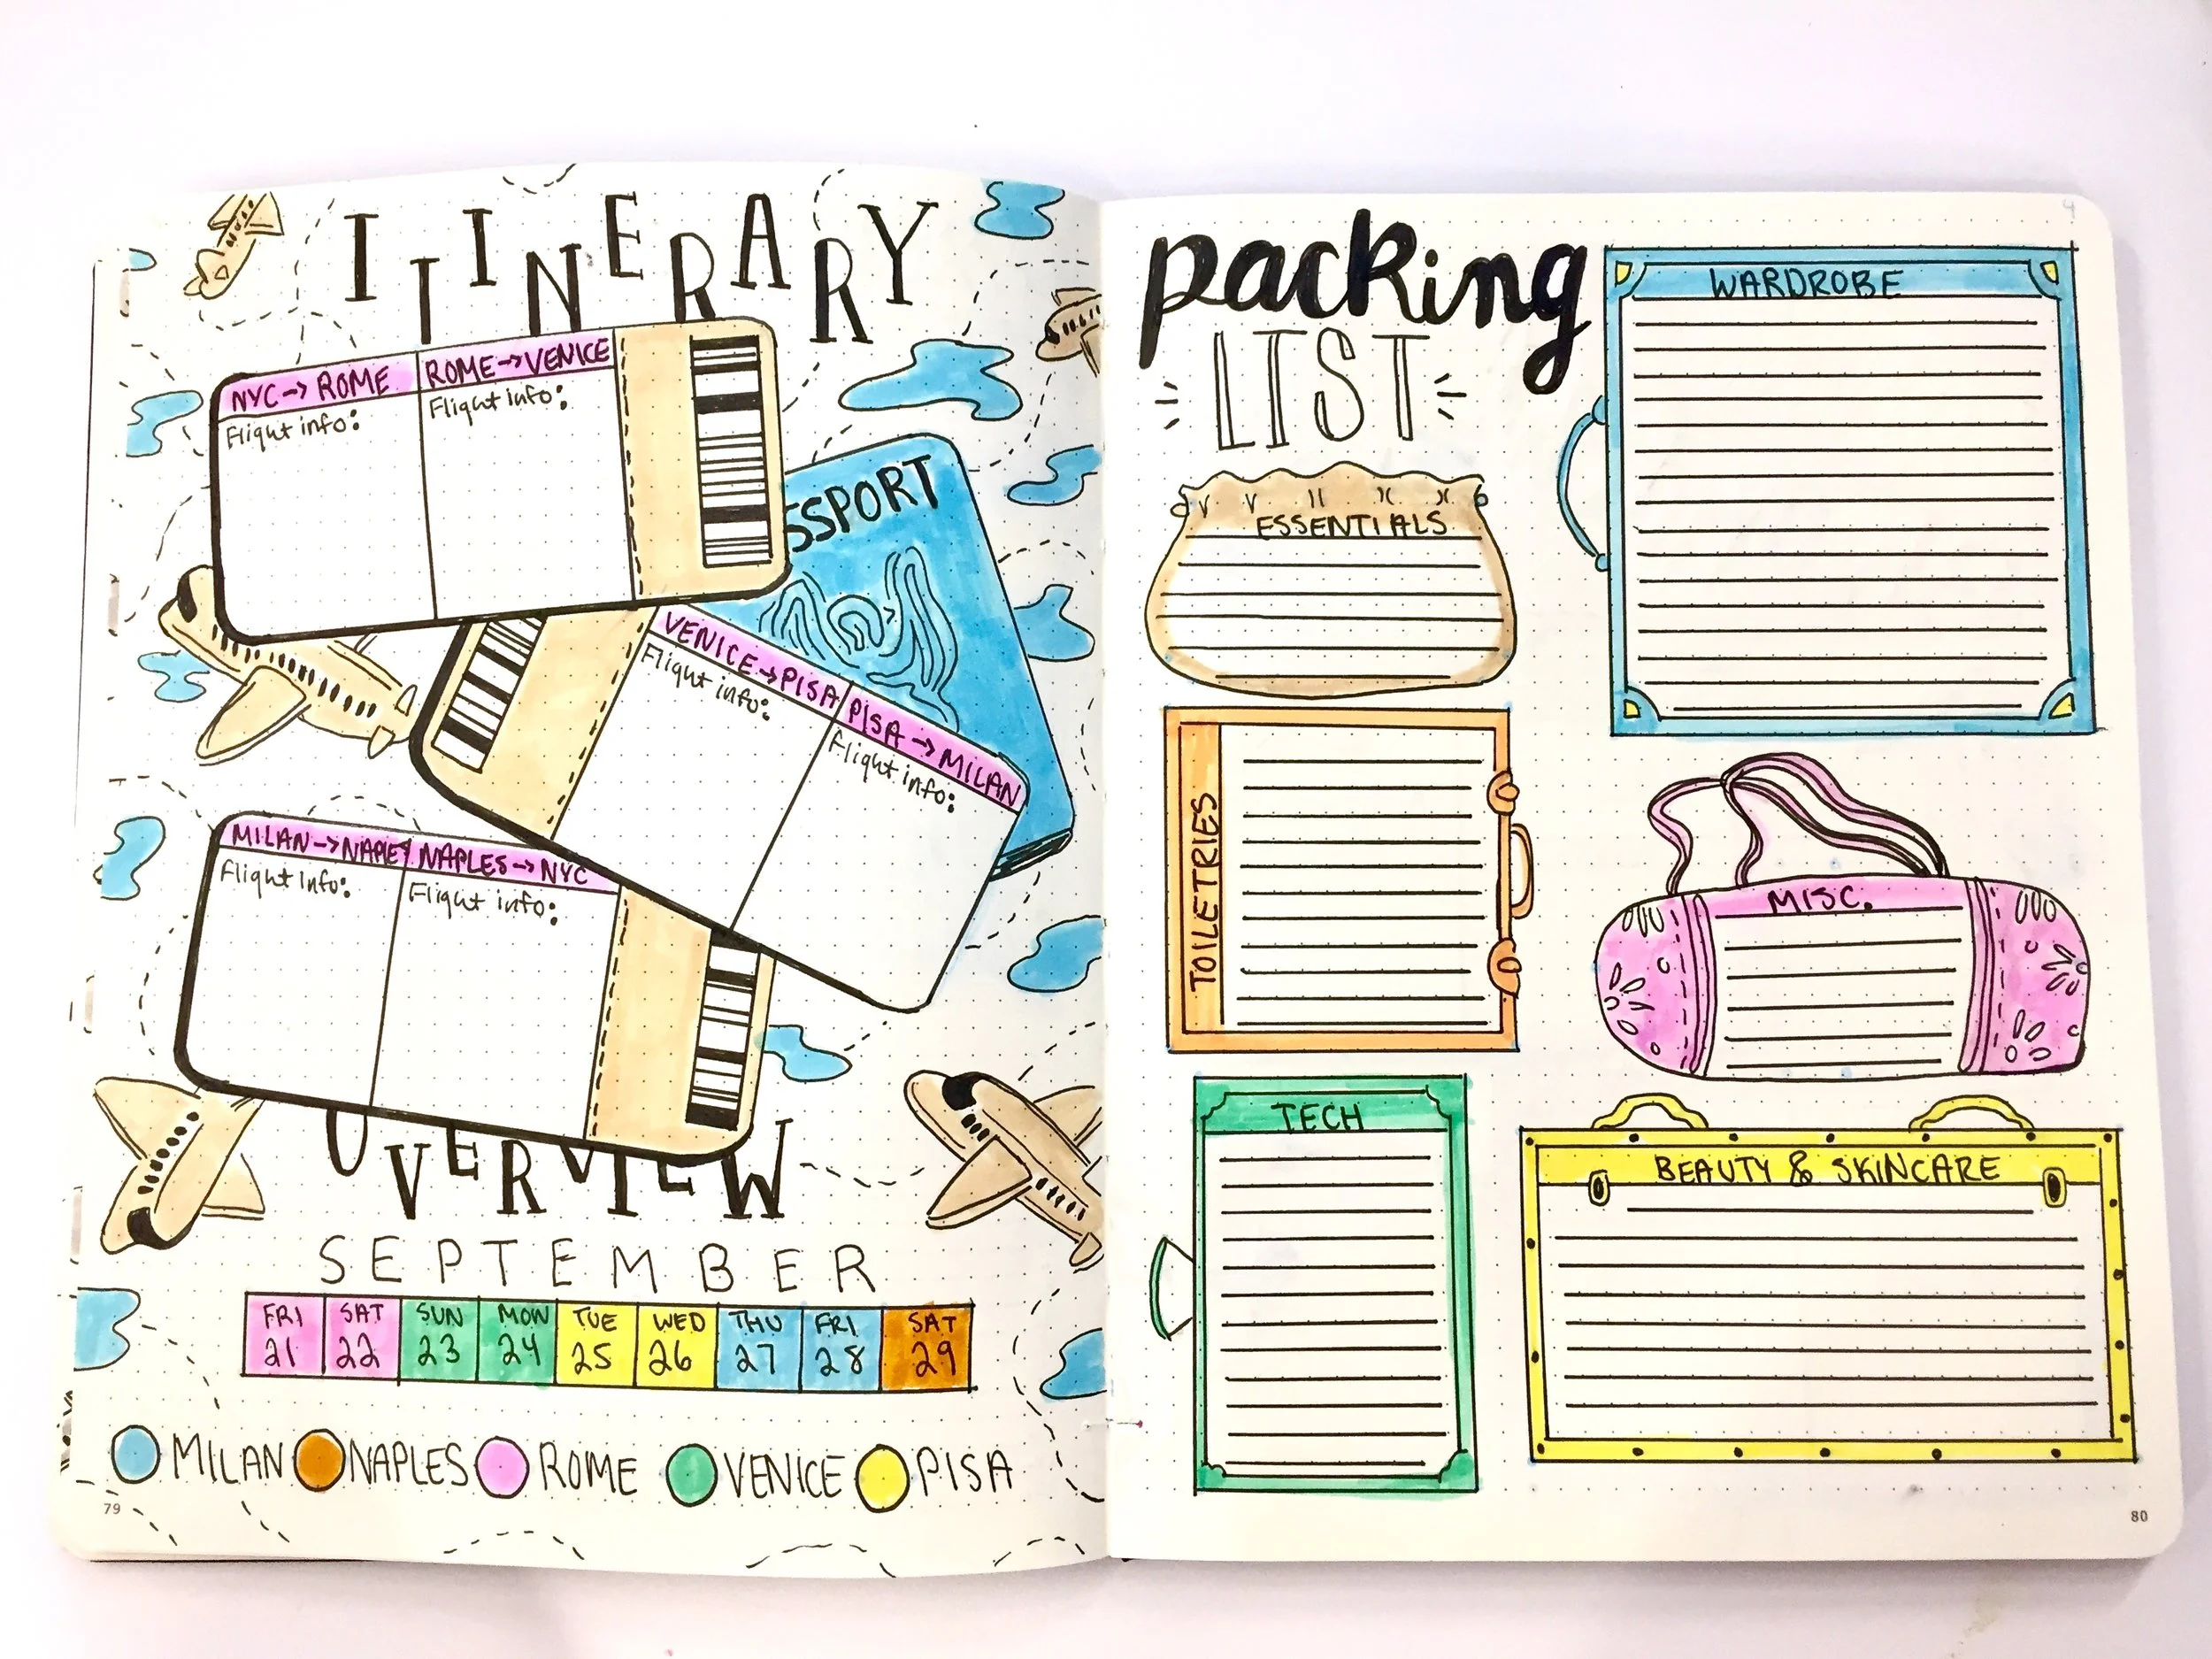 ITINERARY
NYC→ROME
Flight info:
ROME→VENICE
Flight info:
SSPORT
VENICE→PISA
Flight info:
PISA→MILAN
Flight info:
MILAN→NAPLES
Flight Info:
NAPLES→NYC
Flight info:
OVERVIEW
SEPTEMBER
FRI SAT SUN MON TUE WED THU FRI SAT
21 22 23 24 25 26 27 28 29
MILAN NAPLES ROME VENICE PISA
79
packing
LIST
ESSENTIALS
WARDROBE
TOILETRIES
MISC.
TECH
BEAUTY & SKINCARE
80